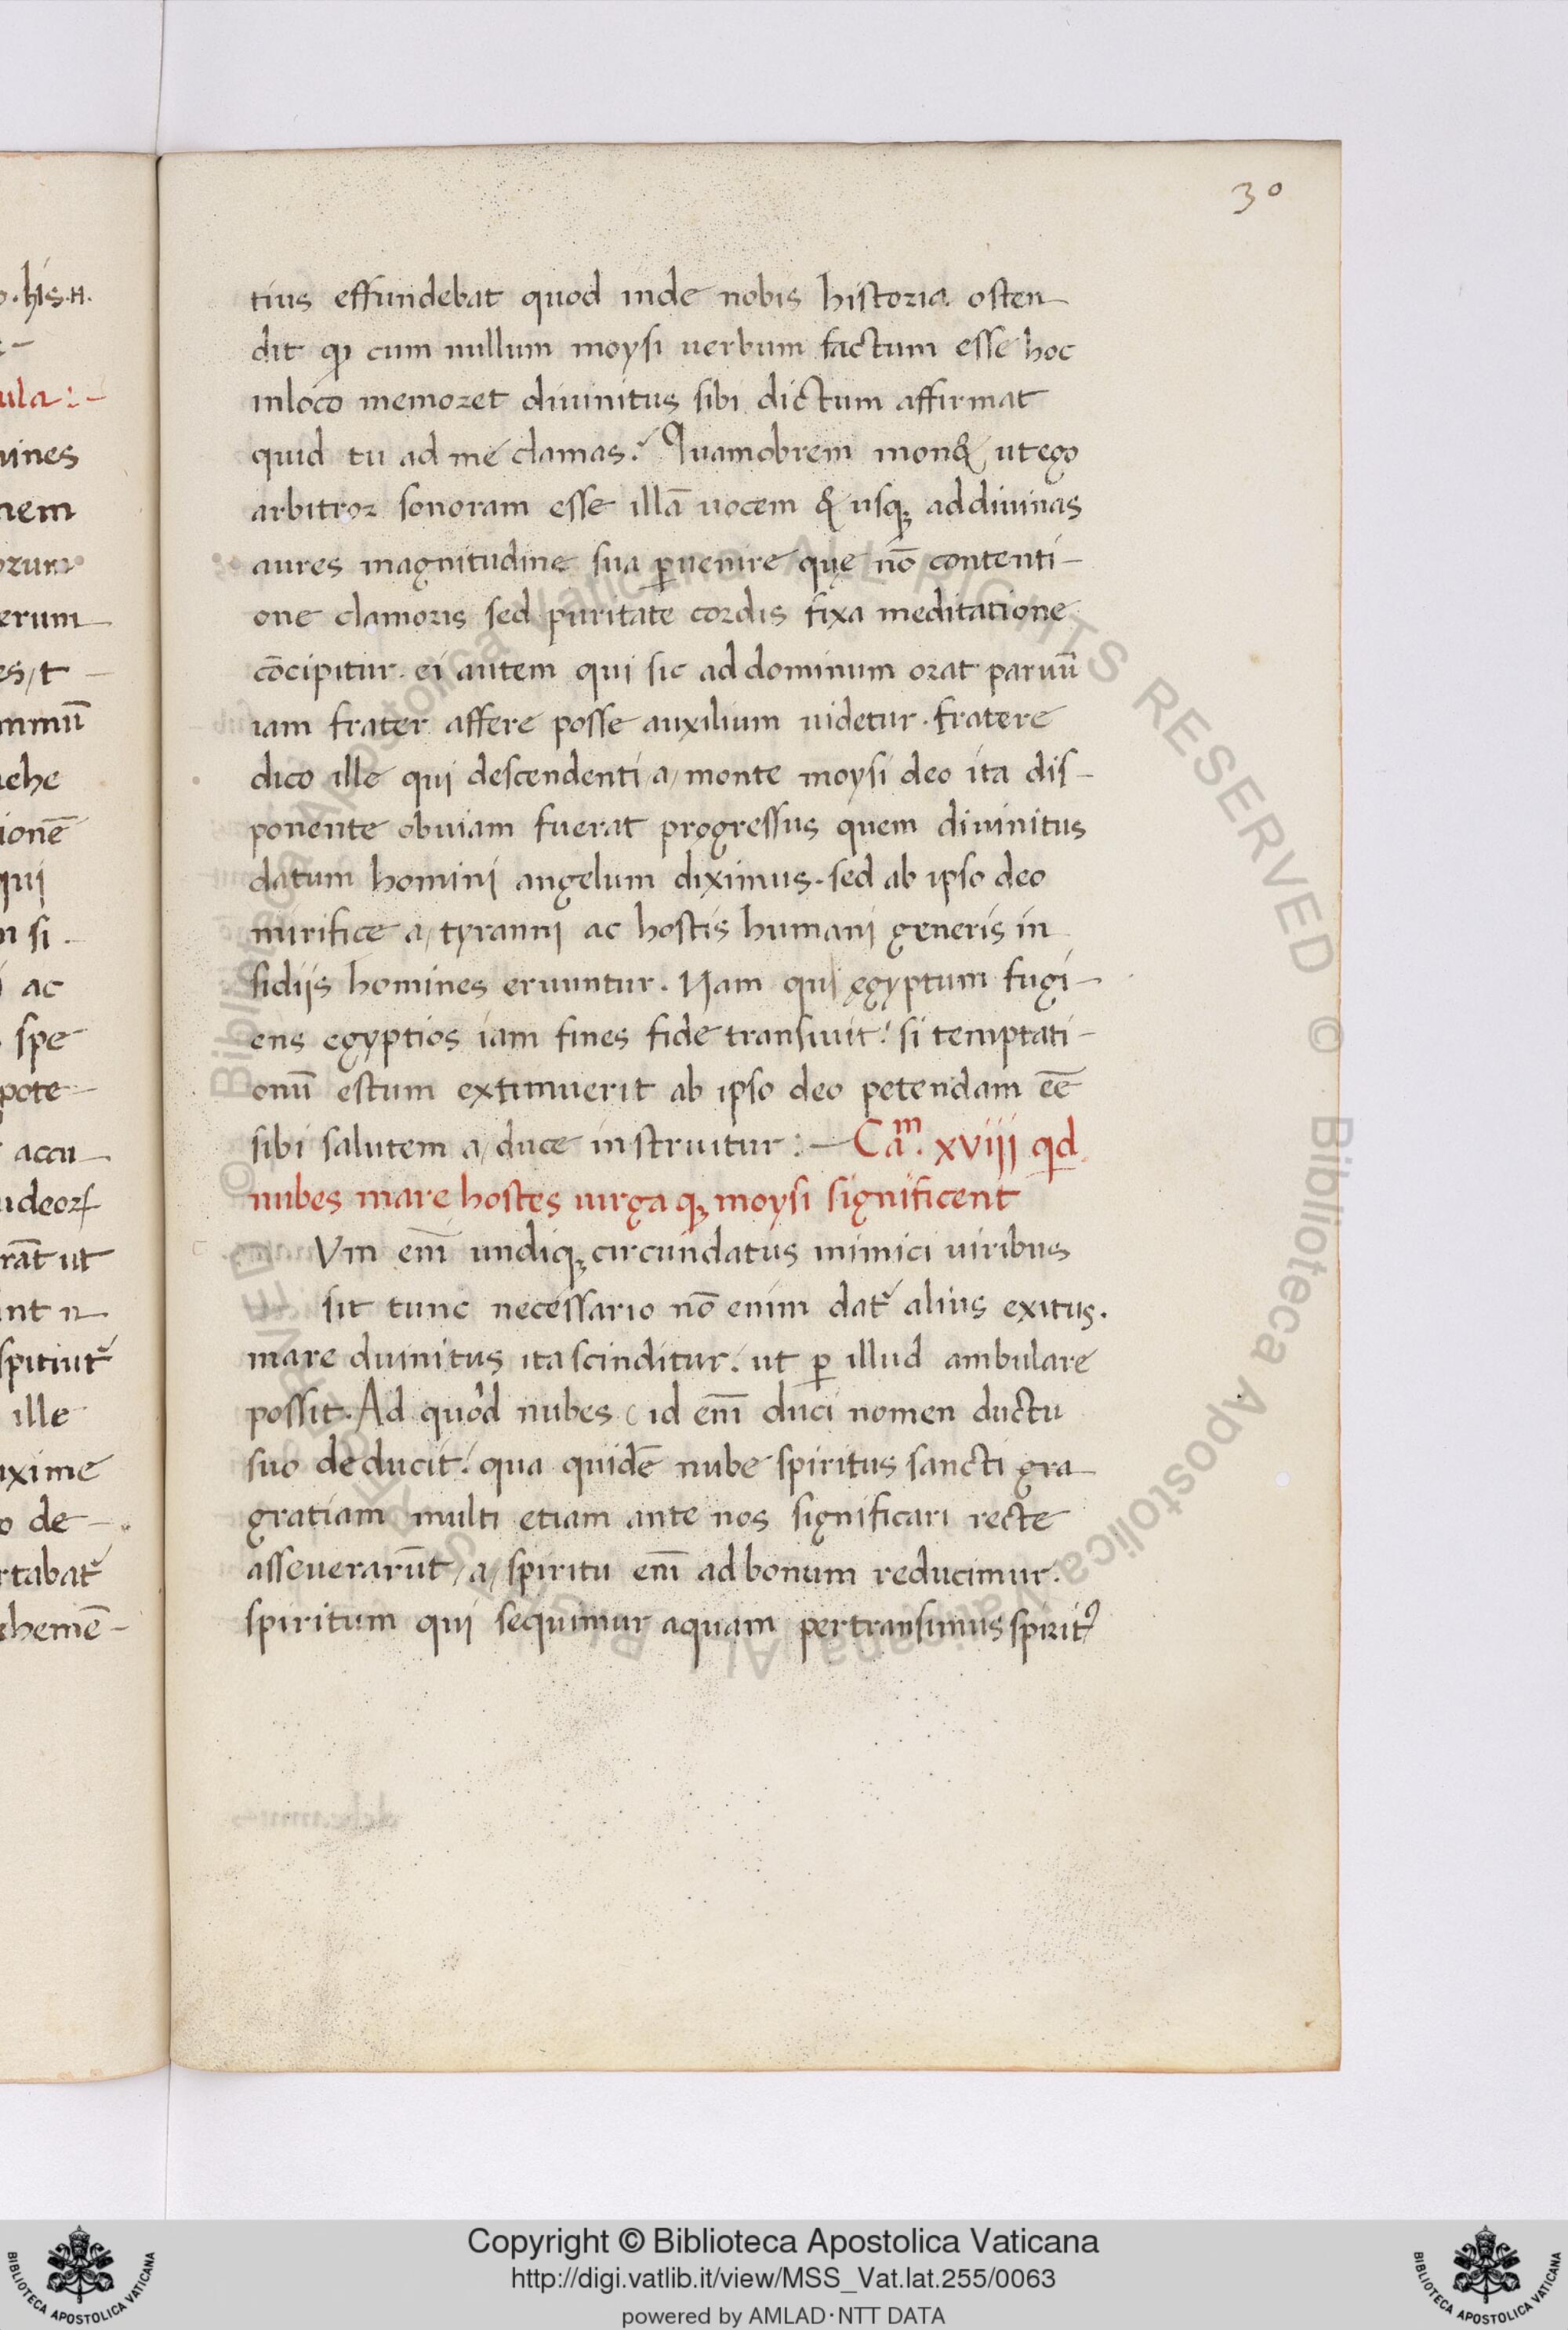 30
o. his.H.
ula:-
uines
nem
ozum
erum
es,t
mmũ
ehe
ionẽ
qui
n si.
i ac
spe
pote-
accu
udeoꝝ
rãt ut
int n
spitiut᷑
ille
uxime
o de-
rtabat᷑
hemẽ-
tius effundebat quod inde nobis historia osten
dit qꝫ cum nullum moysi uerbum factum esse hoc
inloco memoret diuinitus sibi dictum affirmat
quid tu ad me clamas? Quamobrem mon& ut ego
arbitror sonoram esse illã uocem & usqꝫ ad diuinas
aures magnitudine sua ꝑuenire quę nõ contenti-
one clamoris sed puritate cordis fixa meditatione
cõcipitur. ei autem qui sic ad dominum orat paruũ
iam frater affere posse auxilium uidetur. fratere
dico ille qui descendenti /a/ monte moysi deo ita dis-
ponente obuiam fuerat progressus quem diuinitus
datum homini angelum diximus. sed ab ipso deo
mirifice a/ tyranni ac hostis humani generis in
sidijs homines eruuntur. Nam qui ęgyptum fugi-
ens egyptios iam fines fide transiuit! si temptati-
onũ estum extimuerit ab ipso deo petendam eẽ
sibi salutem a/ duce instruitur:- Caᵐ. xviij qd
nubes mare hostes uirga qꝫ moysi significent
Vm em̃ undiqꝫ circundatus inimici uiribus
sit tunc necessario nõ enim dat᷑ alius exitus.
mare diuinitus ita scinditur. ut ꝑ illud ambulare
possit. Ad quod nubes ( id em̃ duci nomen ductu
suo deducit! qua quidẽ nube spiritus sancti gra
gratiam multi etiam ante nos significari recte
asseuerarũt /a/ spiritu em̃ ad bonum reducimur.
spiritum qui sequimur aquam pertransimus spiritꝰ
© Biblioteca Apostolica Vaticana ALL RIGHTS RESERVED © Biblioteca Apostolica Vaticana ALL RIGHTS RESERVED
Copyright © Biblioteca Apostolica Vaticana
http://digi.vatlib.it/view/MSS_Vat.lat.255/0063
powered by AMLAD·NTT DATA
BIBLIOTECA APOSTOLICA VATICANA
BIBLIOTECA APOSTOLICA VATICANA